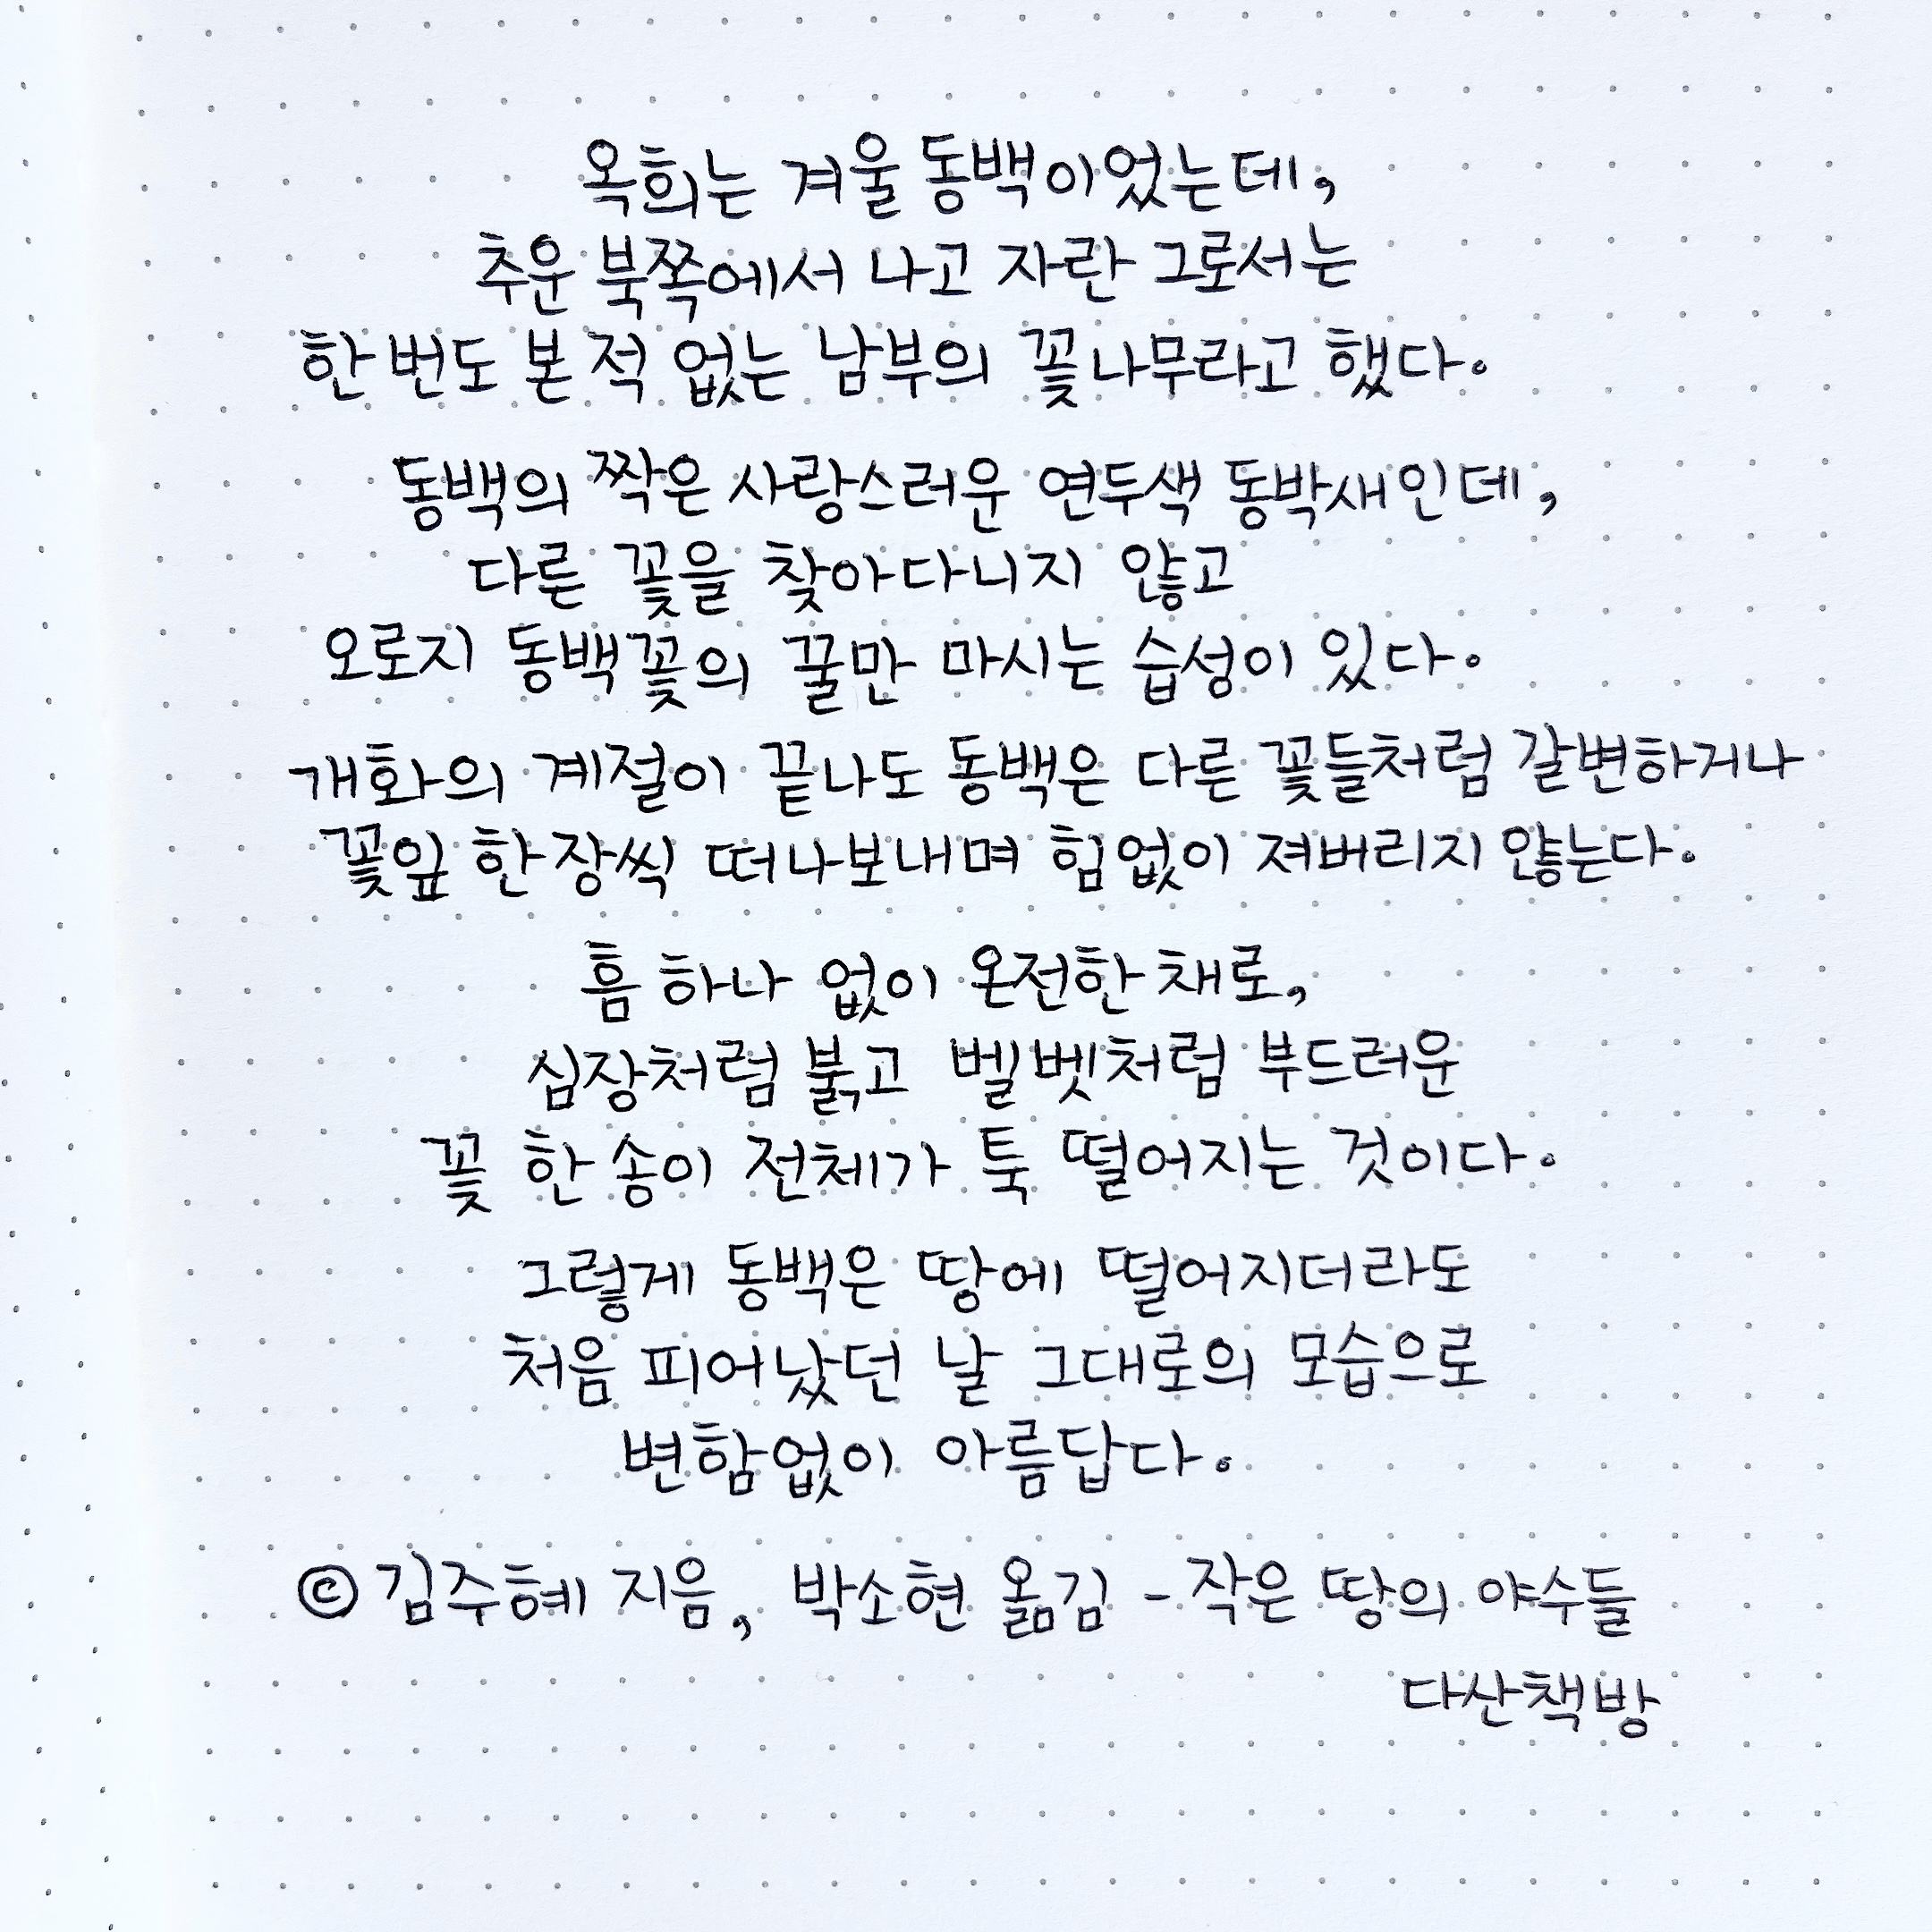 옥희는 겨울 동백이었는데,
추운 북쪽에서 나고 자란 그로서는
한 번도 본 적 없는 남부의 꽃나무라고 했다.
동백의 짝은 사랑스러운 연두색 동박새인데,
다른 꽃을 찾아다니지 않고
오로지 동백꽃의 꿀만 마시는 습성이 있다.
개화의 계절이 끝나도 동백은 다른 꽃들처럼 갈변하거나
꽃잎 한 장씩 떠나보내며 힘없이 져버리지 않는다.
흠 하나 없이 온전한 채로,
심장처럼 붉고 벨벳처럼 부드러운
꽃 한 송이 전체가 툭 떨어지는 것이다.
그렇게 동백은 땅에 떨어지더라도
처음 피어났던 날 그대로의 모습으로
변함없이 아름답다.
© 김주혜 지음, 박소현 옮김 - 작은 땅의 야수들
다산책방